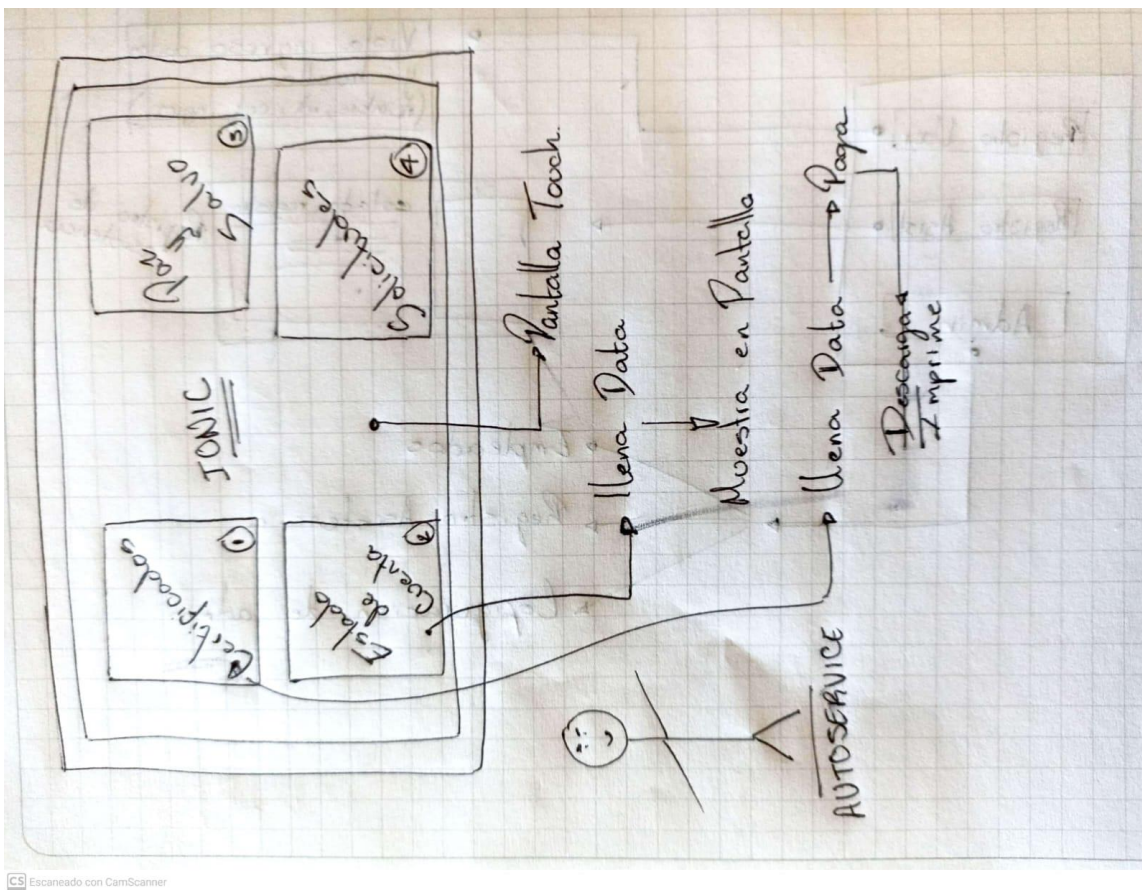 IONIC
Certificados
1
Paz y
Salvo
3
Estado
de
Cuenta
2
Solicitudes
4
Pantalla Touch.
llena Data
Muestra en Pantalla
llena Data
Paga
Descarga
Imprime
AUTOSERVICE
CS Escaneado con CamScanner